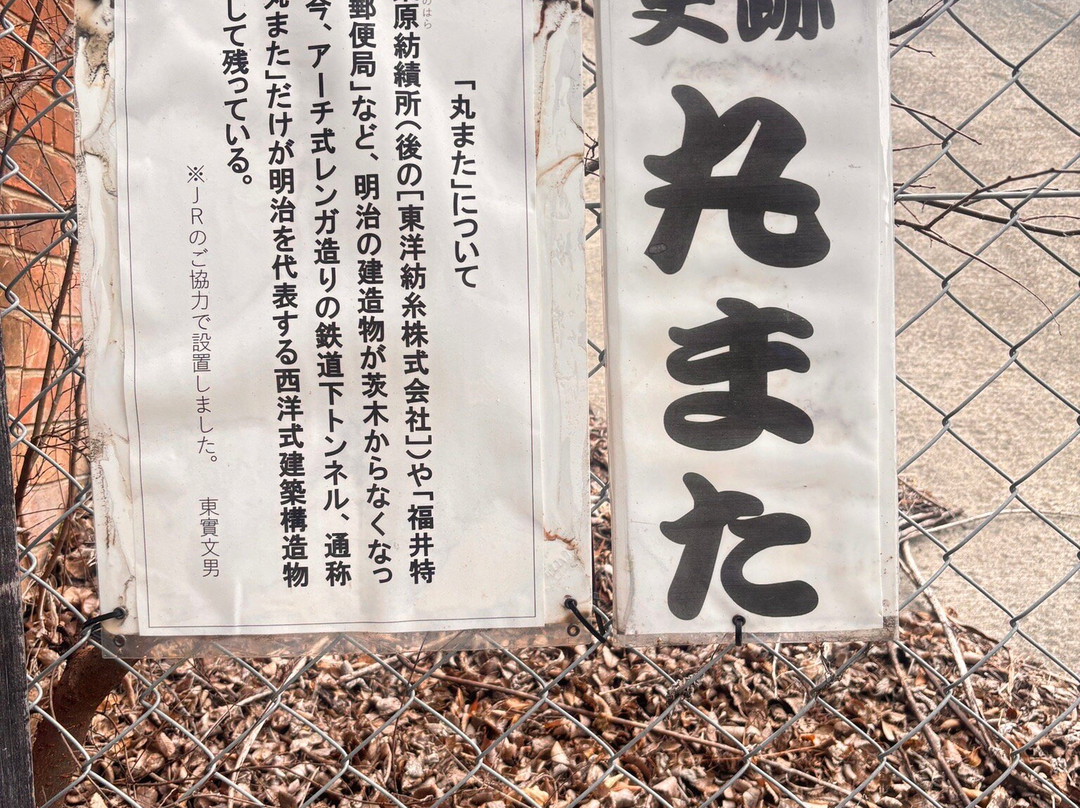 史跡
丸また
「丸また」について
原紡績所（後の［東洋紡糸株式会社］）や「福井特
郵便局」など、明治の建造物が茨木からなくなっ
今、アーチ式レンガ造りの鉄道下トンネル、通称
丸また」だけが明治を代表する西洋式建築構造物
して残っている。
※ＪＲのご協力で設置しました。　東實文男